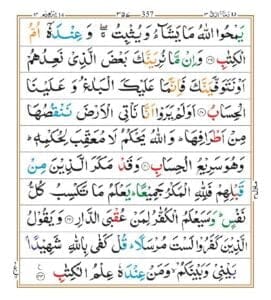 357
يَمْحُوا اللّٰهُ مَا يَشَآءُ وَيُثْبِتُ ۖۚ وَعِنْدَهٗٓ اُمُّ
الْكِتٰبِ ۝ وَاِنْ مَّا نُرِيَنَّكَ بَعْضَ الَّذِيْ نَعِدُهُمْ
اَوْ نَتَوَفَّيَنَّكَ فَاِنَّمَا عَلَيْكَ الْبَلٰغُ وَ عَلَيْنَا
الْحِسَابُ ۝ اَوَلَمْ يَرَوْا اَنَّا نَاْتِي الْاَرْضَ نَنْقُصُهَا
مِنْ اَطْرَافِهَا ؕ وَ اللّٰهُ يَحْكُمُ لَا مُعَقِّبَ لِحُكْمِهٖ ؕ
وَهُوَ سَرِيْعُ الْحِسَابِ ۝ وَقَدْ مَكَرَ الَّذِيْنَ مِنْ
قَبْلِهِمْ فَلِلّٰهِ الْمَكْرُ جَمِيْعًا ؕ يَعْلَمُ مَا تَكْسِبُ كُلُّ
نَفْسٍ ؕ وَسَيَعْلَمُ الْكُفّٰرُ لِمَنْ عُقْبَى الدَّارِ ۝ وَيَقُوْلُ
الَّذِيْنَ كَفَرُوْا لَسْتَ مُرْسَلًا ؕ قُلْ كَفٰى بِاللّٰهِ شَهِيْدًۢا
بَيْنِيْ وَبَيْنَكُمْ ۙ وَمَنْ عِنْدَهٗ عِلْمُ الْكِتٰبِ ۝